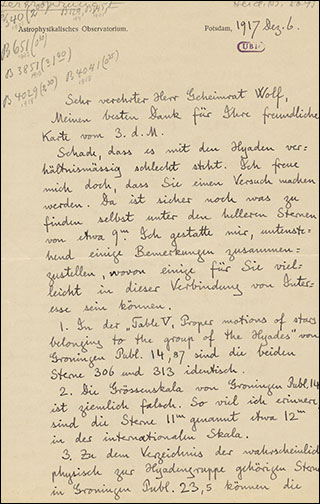 B 651 (0.20)
B 3851 (3|1.00)
B 4029
B 4041
Astrophysikalisches Observatorium.
Potsdam, 1917 Dez. 6.
UBH
Sehr verehrter Herr Geheimrat Wolf,
Meinen besten Dank für Ihre freundliche
Karte vom 3. d. M.
Schade, dass es mit den Hyaden ver-
hältnismässig schlecht steht. Ich freue
mich doch, dass Sie einen Versuch machen
werden. Da ist sicher noch was zu
finden selbst unter den helleren Sternen
von etwa 9m. Ich gestatte mir, untenste-
hend einige Bemerkungen zusammen-
zustellen, wovon einige für Sie viel-
leicht in dieser Verbindung von Inter-
esse sein können.
1. In der „Table V, Proper motions of stars
belonging to the group of the Hyades" von
Groningen Publ. 14, 87 sind die beiden
Sterne 306 und 313 identisch.
2. Die Grössenskala von Groningen Publ. 14
ist ziemlich falsch. So viel ich erinnere
sind die Sterne 11m genannt etwa 12m
in der internationalen Skala.
3. Zu dem Verzeichnis der wahrscheinlich
physisch zur Hyadengruppe gehörigen Sterne
in Groningen Publ. 23, 5 können die